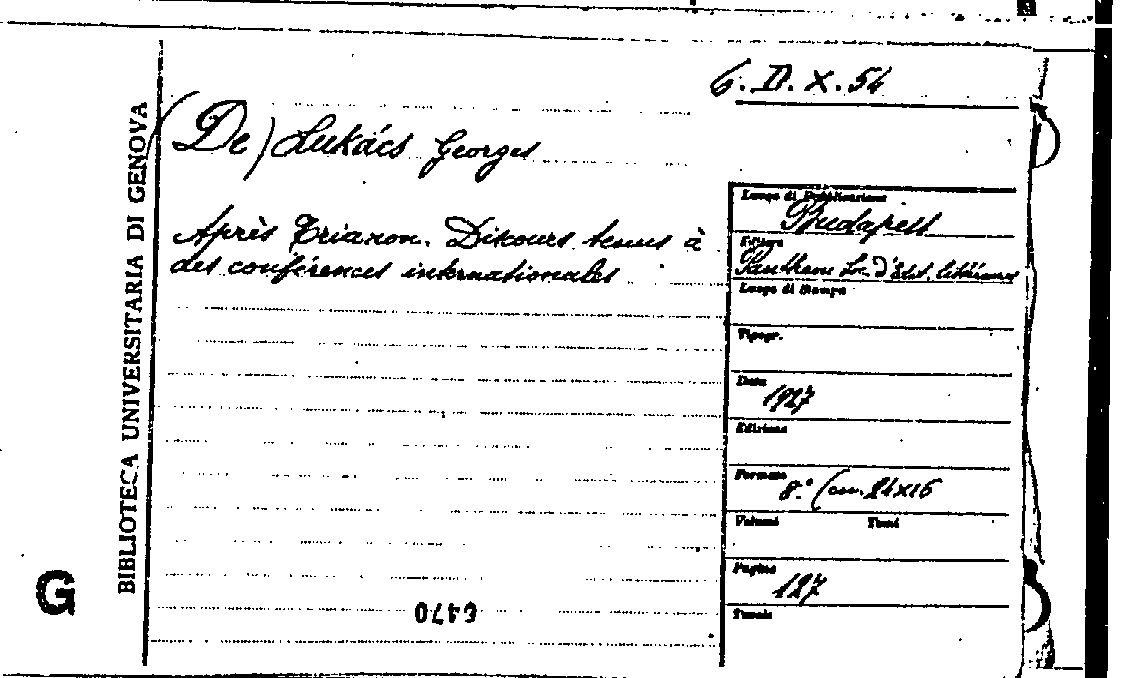 6. D. X. 54
(De) Lukács Georges
Après Trianon. Discours tenus à
des conférences internationales
BIBLIOTECA UNIVERSITARIA DI GENOVA
G
Luogo di Pubblicazione
Budapest
Editore
Pantheon Soc. d'édit. littéraires
Luogo di Stampa
Tipogr.
Data
1927
Edizione
Formato
8.° (cm. 24x16
Volumi Tomi
Pagine
127
Tavole
6470